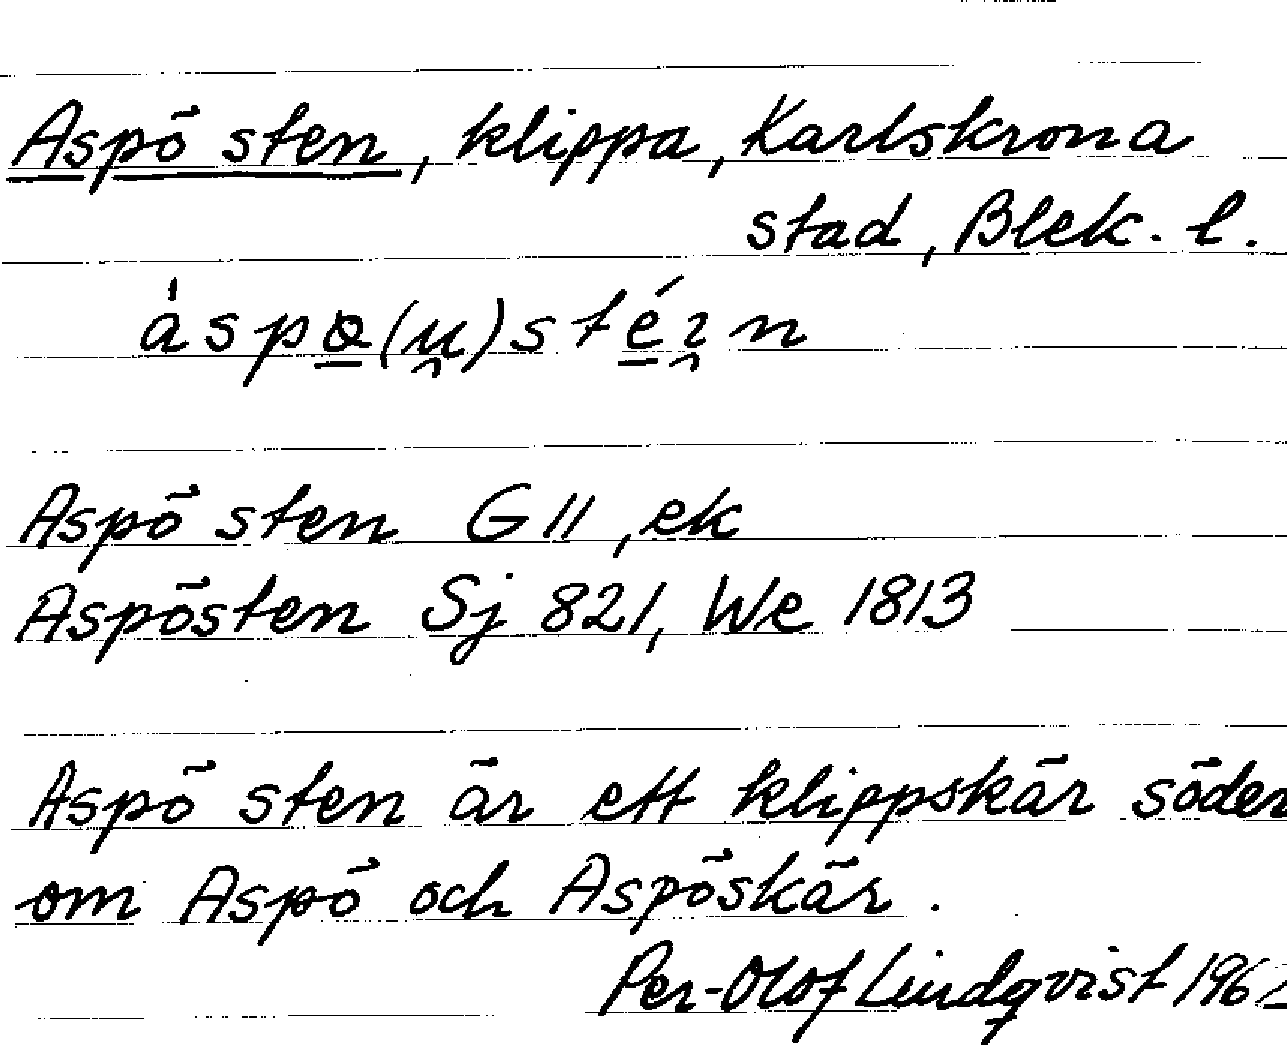 Aspö sten, klippa, Karlskrona
stad, Blek. l.
Aspö sten G 11, ek
Aspösten Sj 821, We 1813
Aspö sten är ett klippskär söder
om Aspö och Aspöskär.
Per-Olof Lindqvist